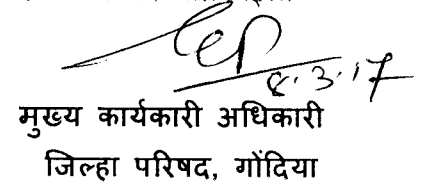 8.3.17
मुख्य कार्यकारी अधिकारी
जिल्हा परिषद, गोंदिया